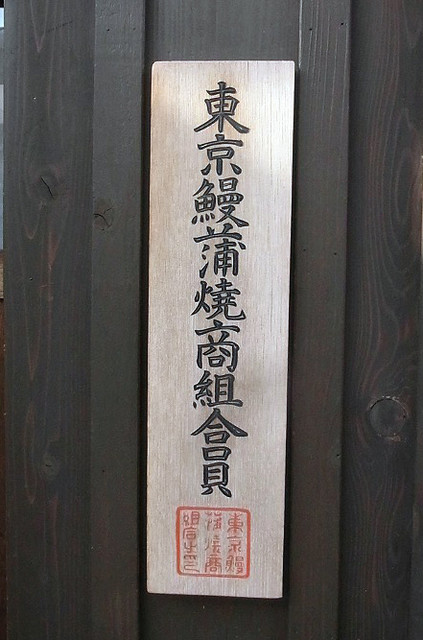 東京鰻蒲燒商組合員
東京鰻
蒲焼商
組合之印